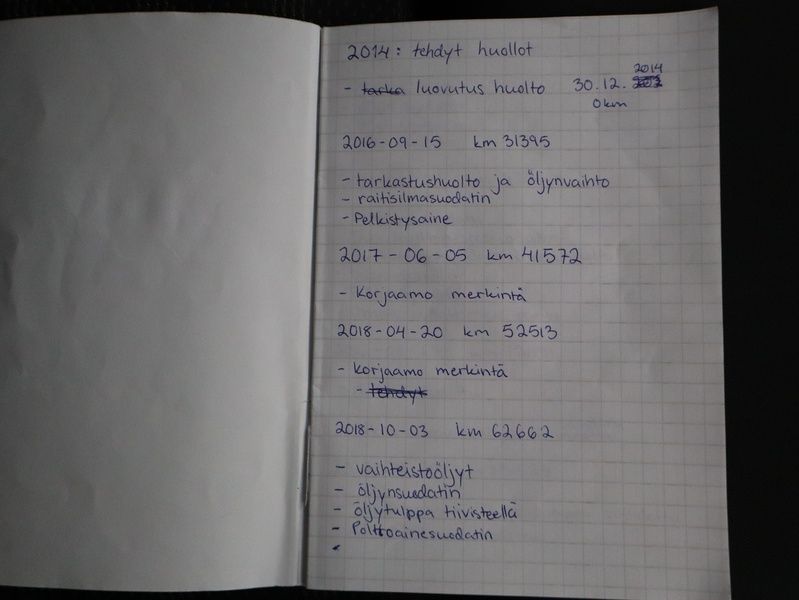 2014: tehdyt huollot
- tarka luovutus huolto 30.12. 2014
0km
2016-09-15 km 31395
- tarkastushuolto ja öljynvaihto
- raitisilmasuodatin
- Pelkistysaine
2017-06-05 km 41572
- Korjaamo merkintä
2018-04-20 km 52513
- korjaamo merkintä
- tehdyt
2018-10-03 km 62662
- vaihteistoöljyt
- öljynsuodatin
- öljytulppa tiivisteellä
- Polttoainesuodatin
-